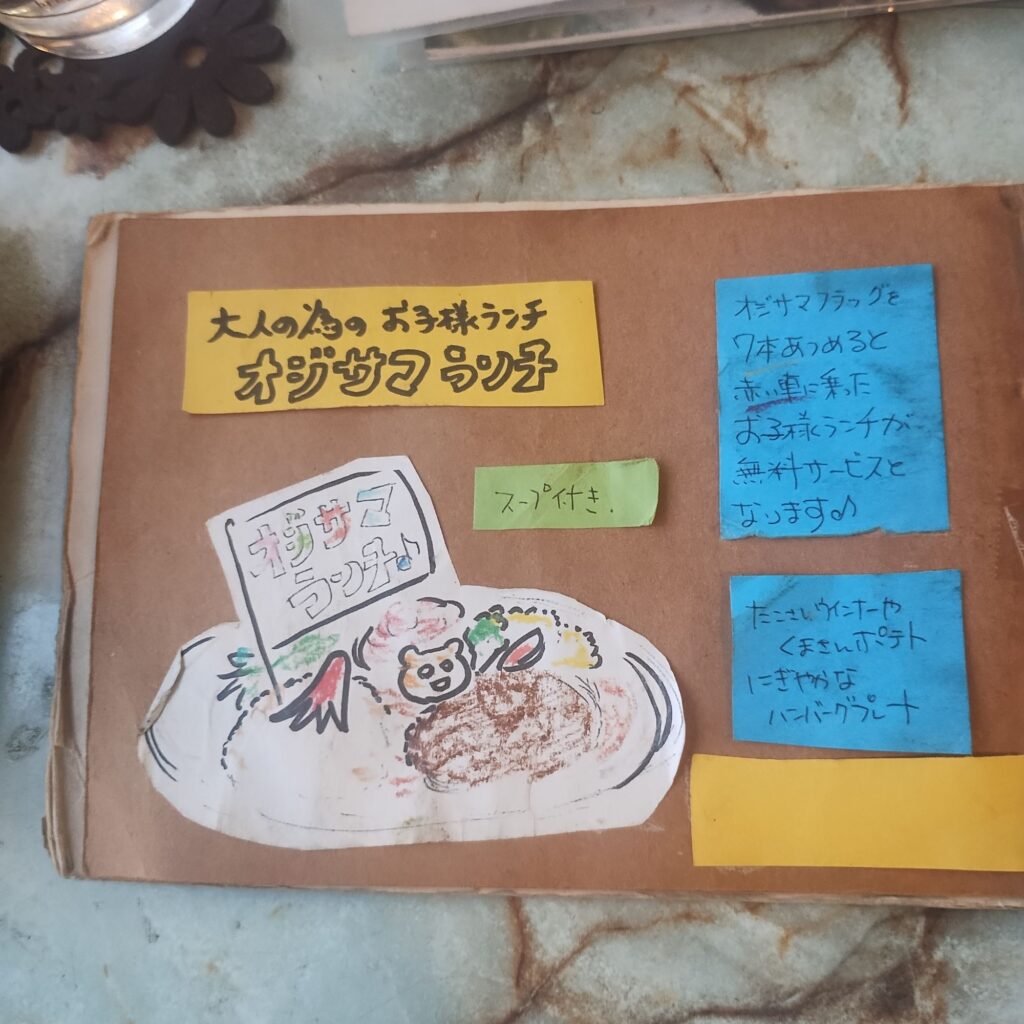 大人の為の お子様ランチ
オジサマ ランチ
スープ付き.
オジサマ
ランチ♪
オジサマフラッグを
7本あつめると
赤い車に乗った
お子様ランチが
無料サービスと
なります♪
たこさんウインナーや
くまさんポテト
にぎやかな
ハンバーグプレート